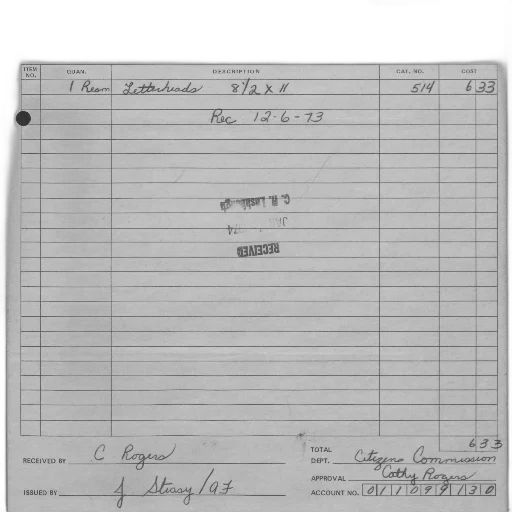 ITEM NO. QUAN. DESCRIPTION CAT. NO. COST
1 Ream Letterheads 8 1/2 X 11 514 6 33
Rec 12-6-73
RECEIVED
C. R. Lashbrugh
TOTAL 6 33
RECEIVED BY C Rogers DEPT. Citizens Commission
APPROVAL Cathy Rogers
ISSUED BY J Stiasy/AF ACCOUNT NO. 011099130